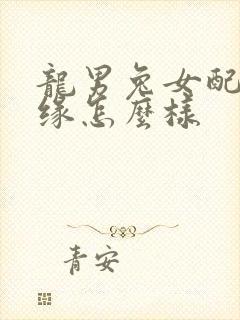 龍男兔女配
緣怎麼樣
青安